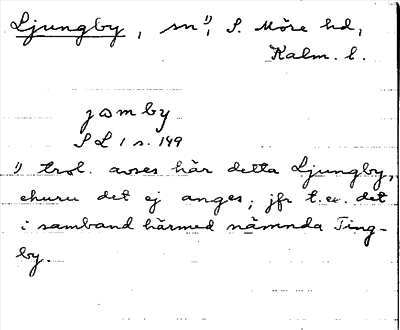 Ljungby, sn¹⁾, S. Möre hd,
Kalm. l.
jɷmby
SL 1 s. 149
¹⁾ trol. avses här detta Ljungby,
ehuru det ej anges; jfr t.ex. det
i samband härmed nämnda Ting-
by.